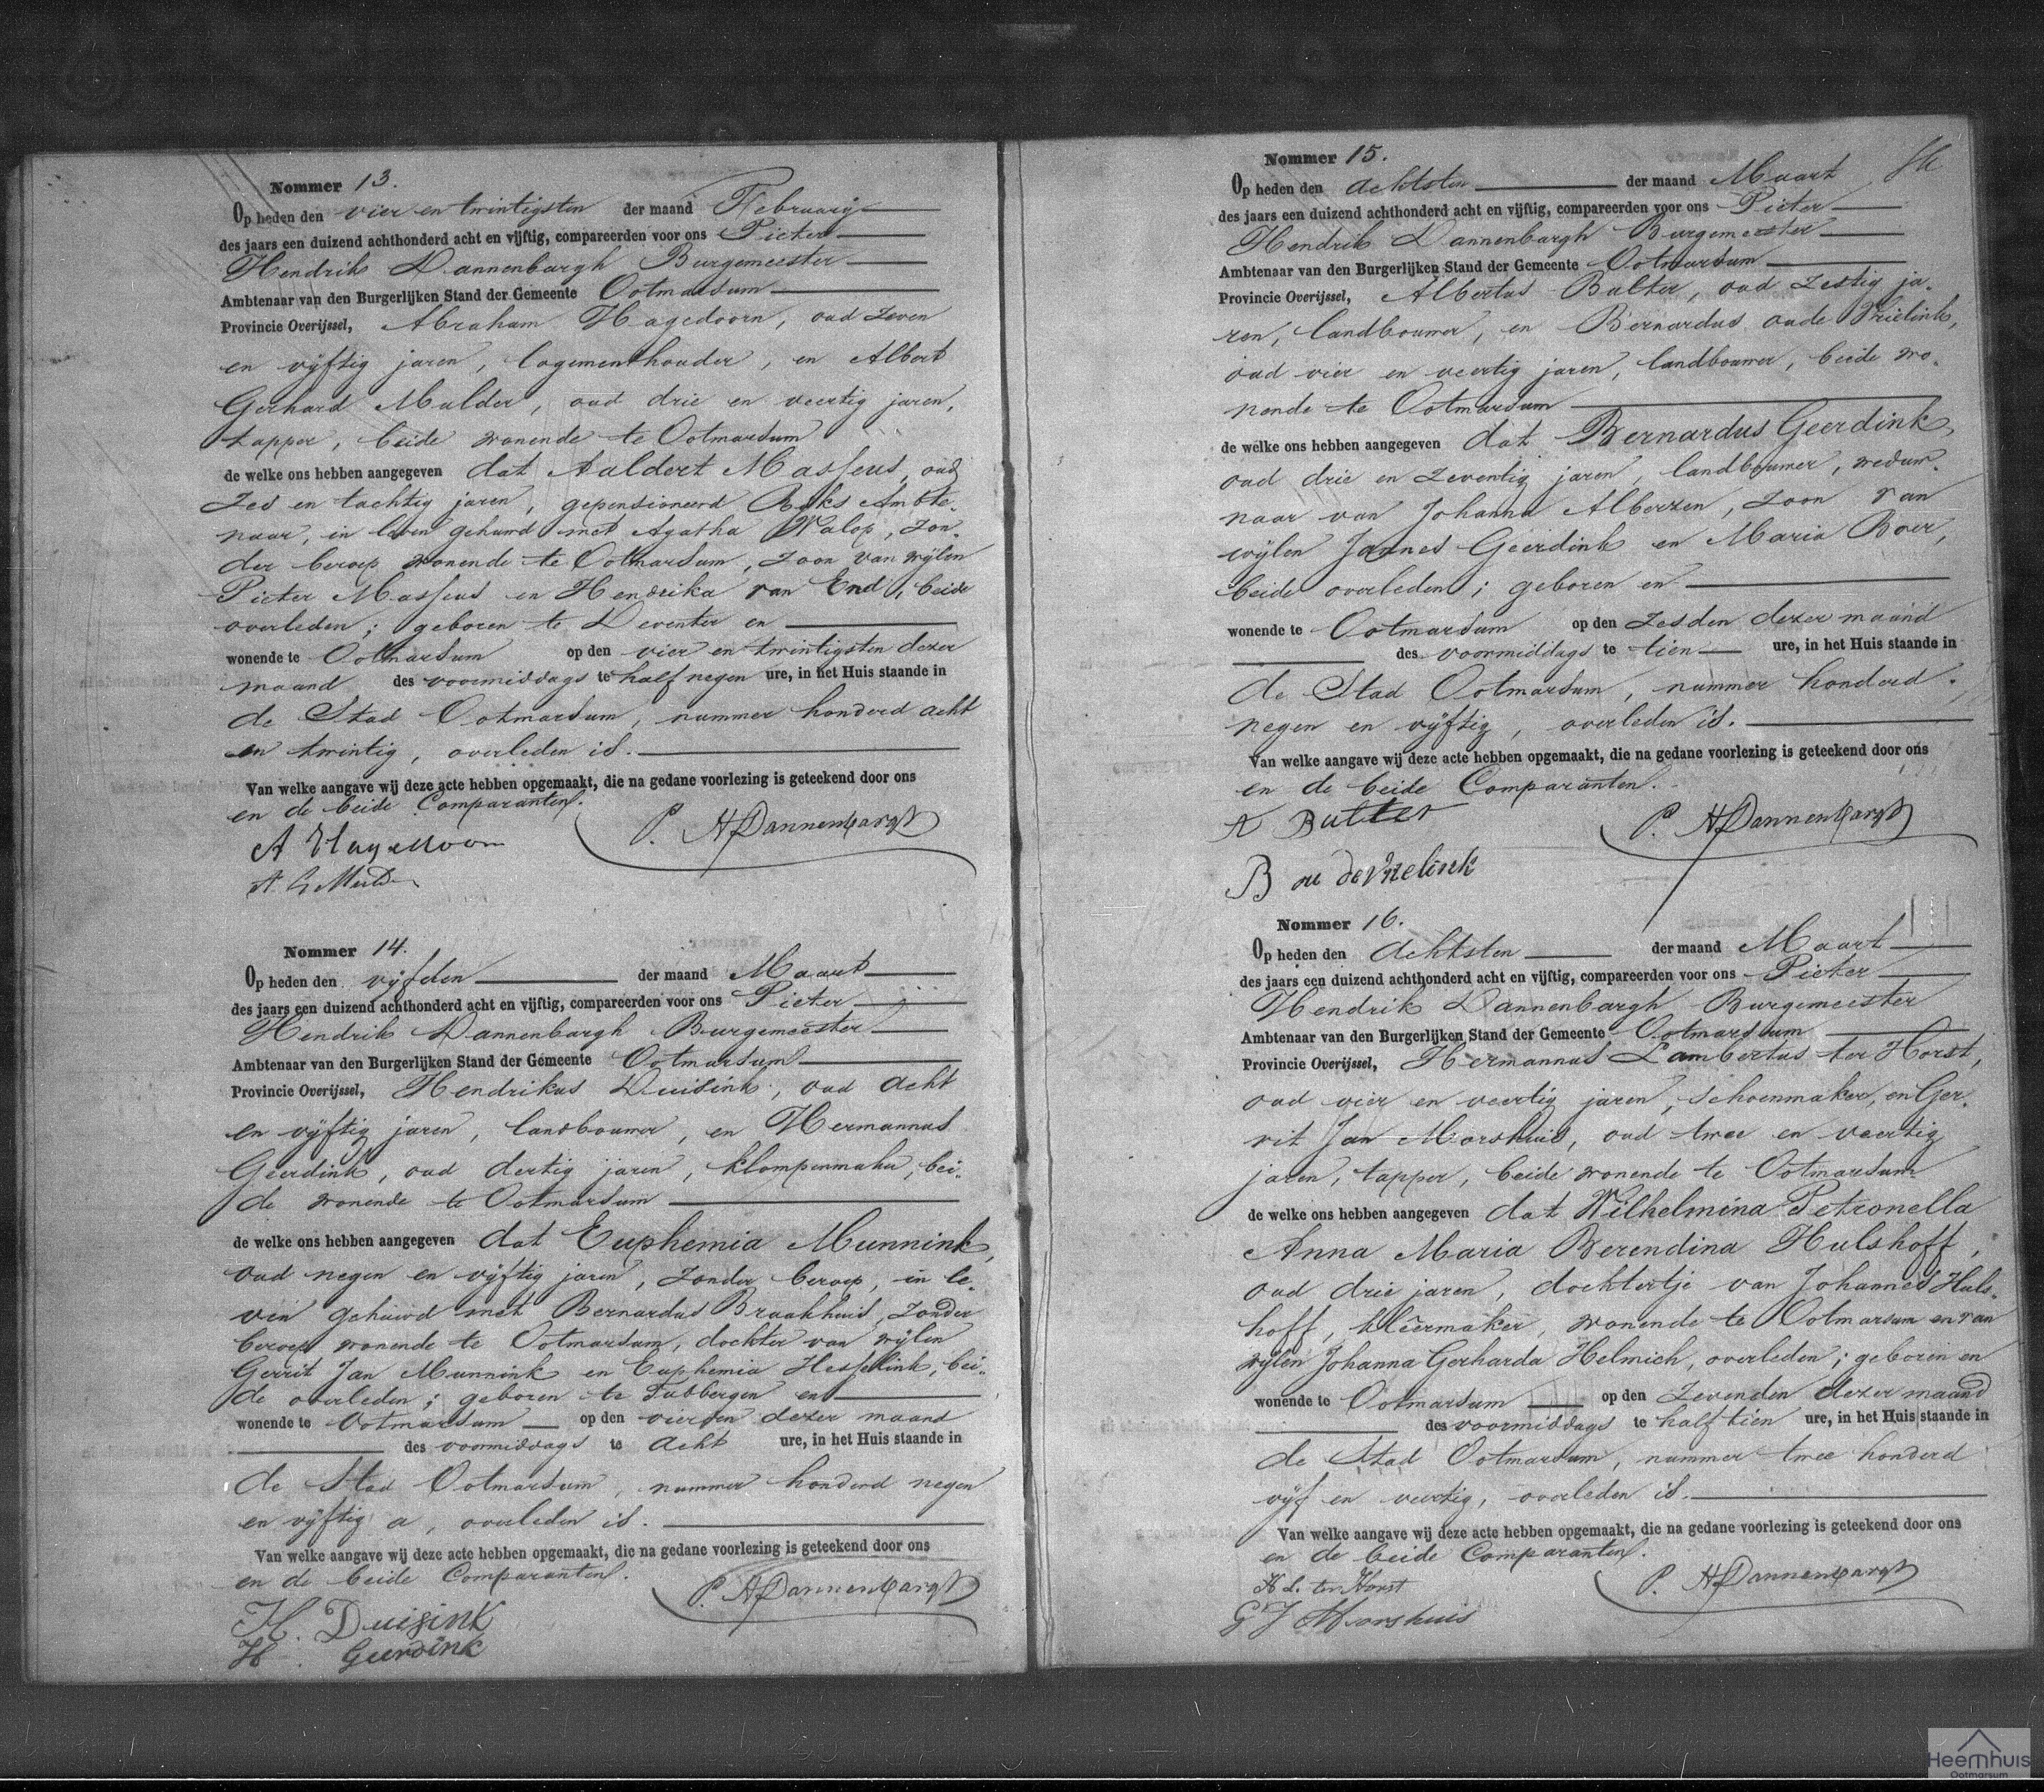 Nommer 13.
Op heden den vier en twintigsten der maand February
des jaars een duizend achthonderd acht en vijftig, compareerden voor ons Pieter
Hendrik Dannenbargh Burgemeester
Ambtenaar van den Burgerlijken Stand der Gemeente Ootmarsum
Provincie Overijssel, Abraham Hagedoorn, oud zeven
en vijftig jaren, logementhouder, en Albert
Gerhard Mulder, oud drie en veertig jaren,
tapper, beide wonende te Ootmarsum
de welke ons hebben aangegeven dat Aaldert Masseus, oud
zes en tachtig jaren, gepensioneerd Rijks Ambte-
naar, in leven gehuwd met Agatha Walop, zon-
der beroep wonende te Ootmarsum, zoon van wijlen
Pieter Masseus en Hendrika van End, beide
overleden; geboren te Deventer en
wonende te Ootmarsum op den vier en twintigsten dezer
maand des voormiddags te half negen ure, in het Huis staande in
de Stad Ootmarsum, nummer honderd acht
en twintig, overleden is.
Van welke aangave wij deze acte hebben opgemaakt, die na gedane voorlezing is geteekend door ons
en de beide Comparanten.
P. H Dannenbargh
A Hagedoorn
A. G Mulder
Nommer 14.
Op heden den vijfden der maand Maart
des jaars een duizend achthonderd acht en vijftig, compareerden voor ons Pieter
Hendrik Dannenbargh Burgemeester
Ambtenaar van den Burgerlijken Stand der Gemeente Ootmarsum
Provincie Overijssel, Hendrikus Duisink, oud acht
en vijftig jaren, landbouwer, en Hermannus
Geerdink, oud dertig jaren, klompenmaker, bei-
de wonende te Ootmarsum
de welke ons hebben aangegeven dat Euphemia Munnink,
oud negen en vijftig jaren, zonder beroep, in le-
ven gehuwd met Bernardus Braakhuis, zonder
beroep wonende te Ootmarsum, dochter van wijlen
Gerrit Jan Munnink en Euphemia Hesselink, bei-
de overleden; geboren te Tubbergen en
wonende te Ootmarsum op den vierden dezer maand
des voormiddags te acht ure, in het Huis staande in
de Stad Ootmarsum, nummer honderd negen
en vijftig a, overleden is.
Van welke aangave wij deze acte hebben opgemaakt, die na gedane voorlezing is geteekend door ons
en de beide Comparanten.
P. H Dannenbargh
H. Duisink
H. Geerdink
Nommer 15.
Op heden den achtsten der maand Maart
des jaars een duizend achthonderd acht en vijftig, compareerden voor ons Pieter
Hendrik Dannenbargh Burgemeester
Ambtenaar van den Burgerlijken Stand der Gemeente Ootmarsum
Provincie Overijssel, Albertus Bulter, oud zestig ja-
ren, landbouwer, en Bernardus oude Vrielink,
oud vier en veertig jaren, landbouwer, beide wo-
nende te Ootmarsum
de welke ons hebben aangegeven dat Bernardus Geerdink,
oud drie en zeventig jaren, landbouwer, weduw-
naar van Johanna Alberzen, zoon van
wijlen Jannes Geerdink en Maria Boer,
beide overleden; geboren en
wonende te Ootmarsum op den zesden dezer maand
des voormiddags te tien ure, in het Huis staande in
de Stad Ootmarsum, nummer honderd
negen en vijftig, overleden is.
Van welke aangave wij deze acte hebben opgemaakt, die na gedane voorlezing is geteekend door ons
en de beide Comparanten.
A Bulter
P. H Dannenbargh
B ou de Vrielink
Nommer 16.
Op heden den achtsten der maand Maart
des jaars een duizend achthonderd acht en vijftig, compareerden voor ons Pieter
Hendrik Dannenbargh Burgemeester
Ambtenaar van den Burgerlijken Stand der Gemeente Ootmarsum
Provincie Overijssel, Hermannus Lambertus ter Horst,
oud vier en veertig jaren, schoenmaker, en Ger-
rit Jan Morshuis, oud twee en veertig
jaren, tapper, beide wonende te Ootmarsum
de welke ons hebben aangegeven dat Wilhelmina Petronella
Anna Maria Berendina Hulshoff,
oud drie jaren, dochtertje van Johannes Huls-
hoff, kleermaker, wonende te Ootmarsum en van
wijlen Johanna Gerharda Helmich, overleden; geboren en
wonende te Ootmarsum op den zevenden dezer maand
des voormiddags te half tien ure, in het Huis staande in
de Stad Ootmarsum, nummer twee honderd
vijf en veertig, overleden is.
Van welke aangave wij deze acte hebben opgemaakt, die na gedane voorlezing is geteekend door ons
en de beide Comparanten.
P. H Dannenbargh
H L. ter Horst
G J Morshuis
Heemhuis
Ootmarsum